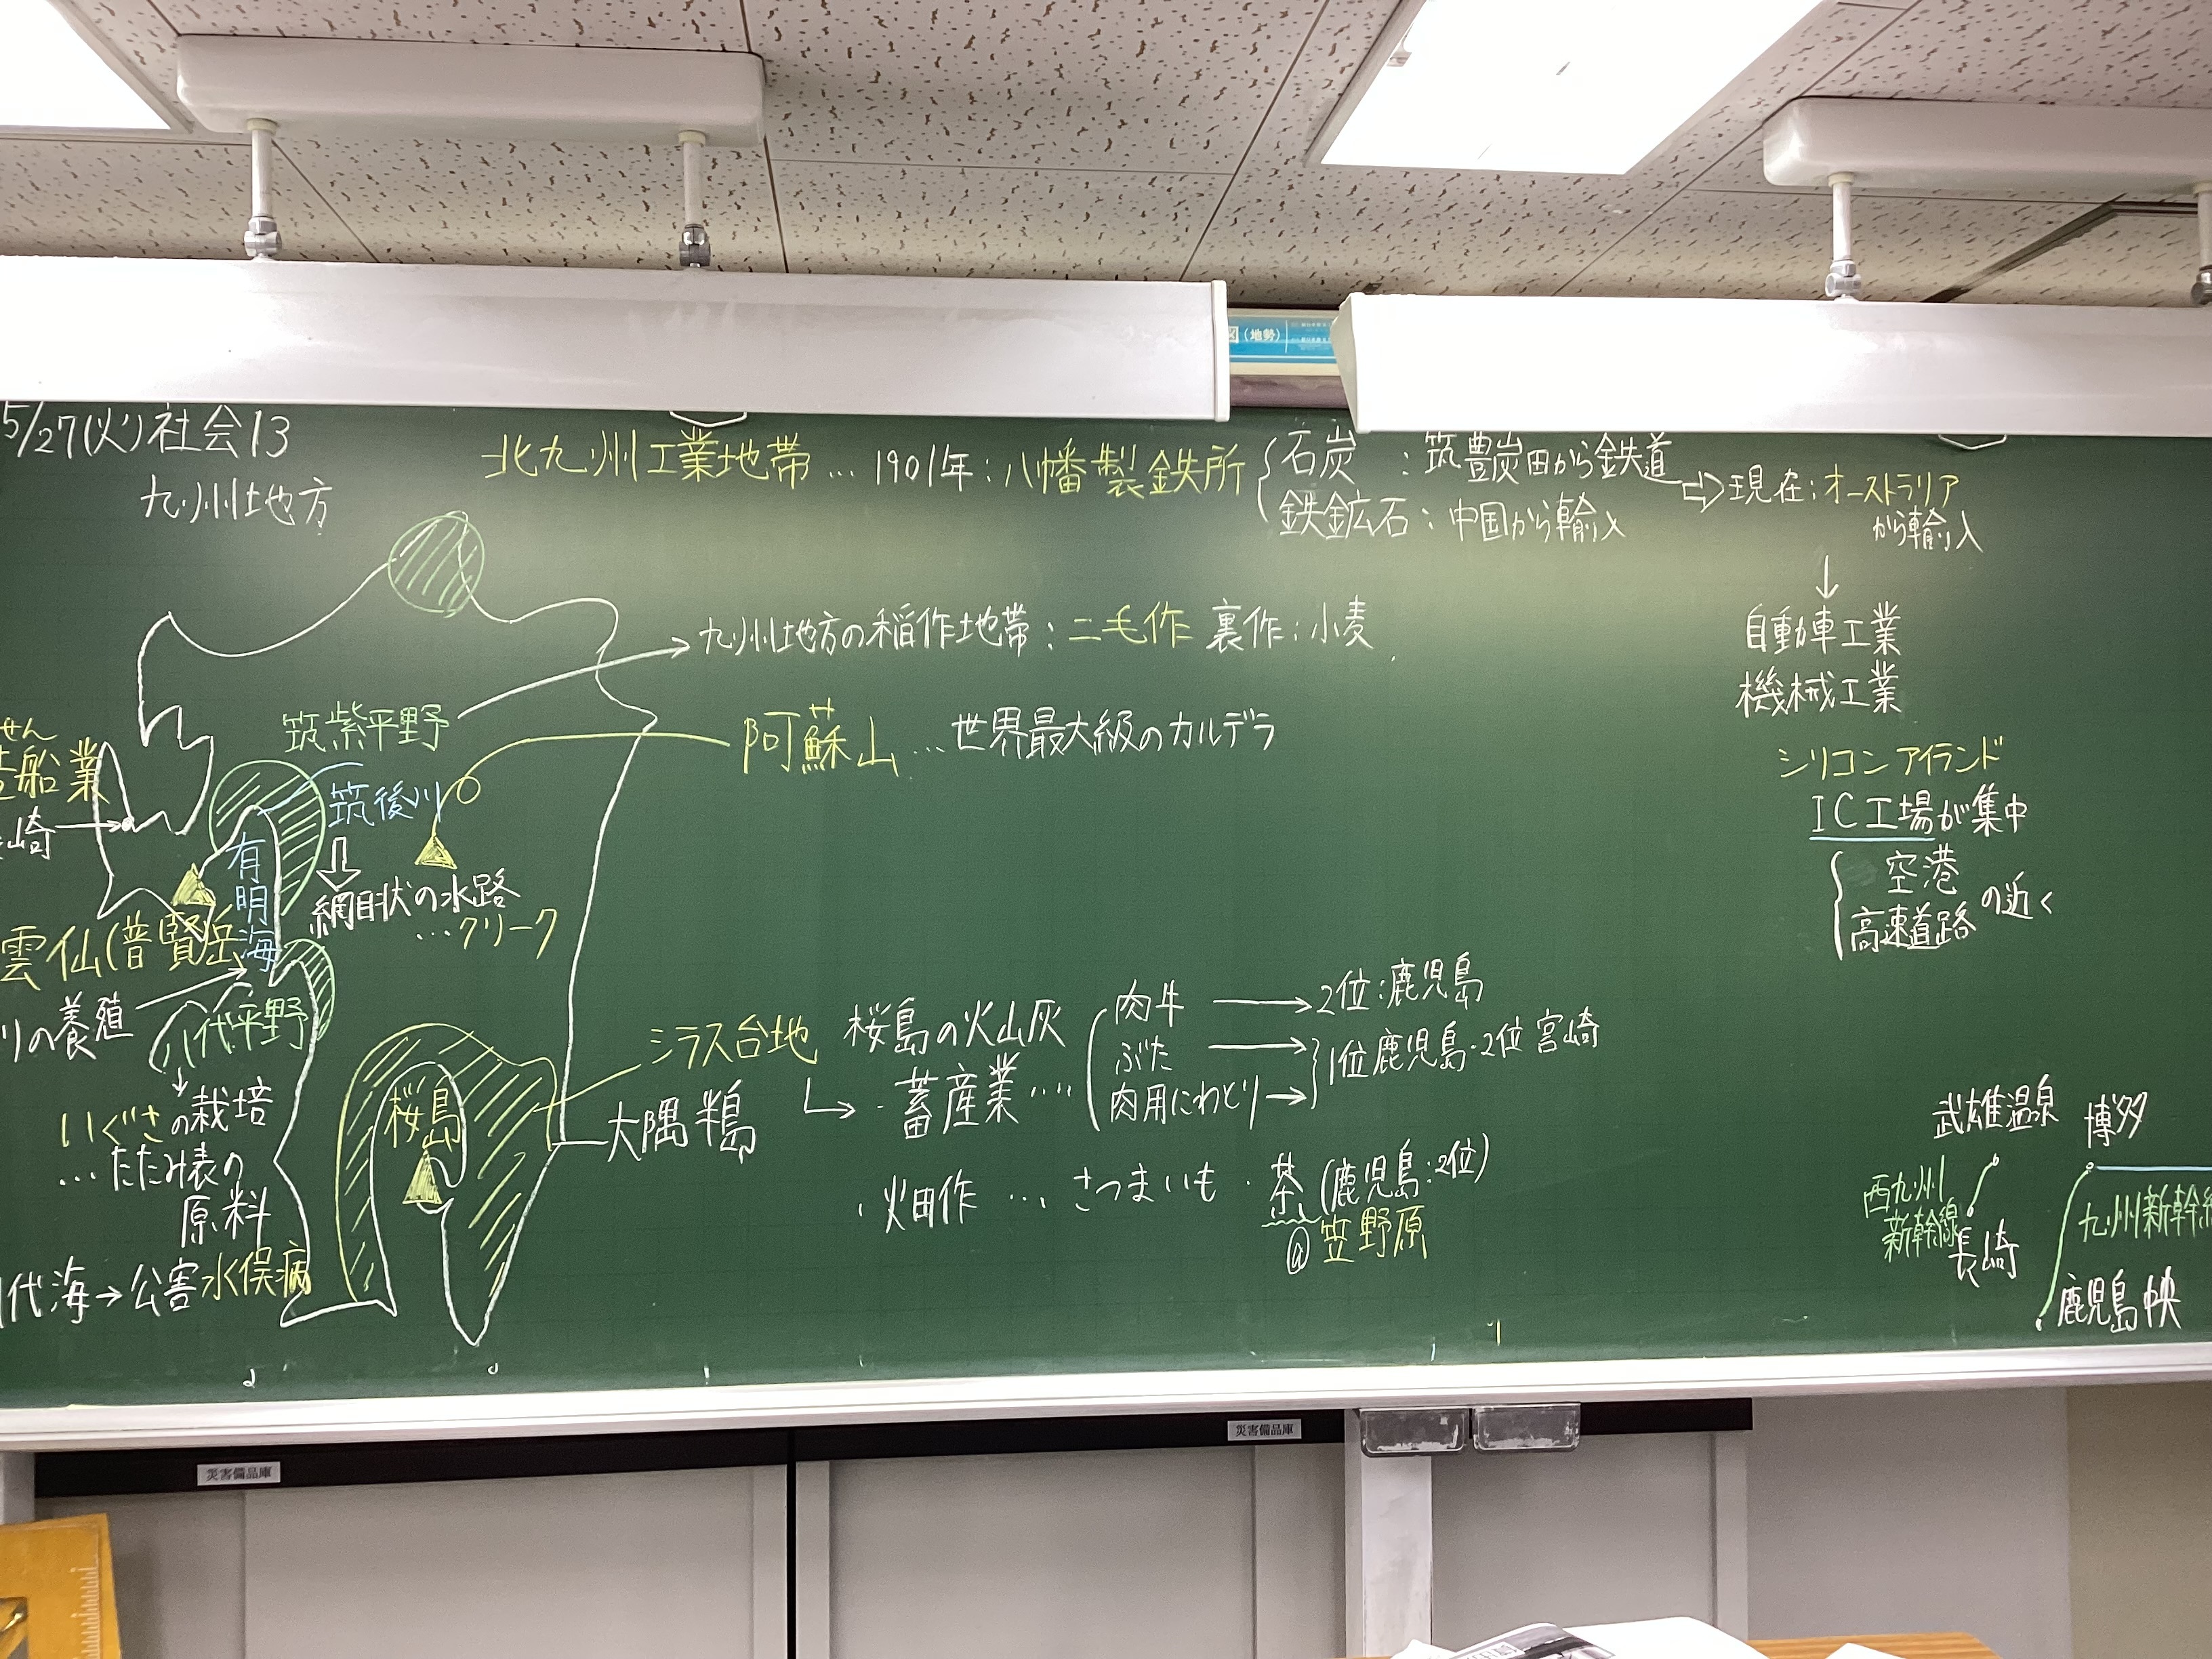 (地勢)
5/27(火)社会13
九州地方
北九州工業地帯…1901年:八幡製鉄所
石炭:筑豊炭田から鉄道
鉄鉱石:中国から輸入
⇨現在:オーストラリア
から輸入
↓
自動車工業
機械工業
シリコンアイランド
IC工場が集中
空港
高速道路
の近く
→九州地方の稲作地帯:二毛作 裏作:小麦
筑紫平野
阿蘇山…世界最大級のカルデラ
せん
船業
崎→
筑後川
⇩
網目状の水路
…クリーク
有明海
雲仙(普賢岳
リの養殖
八代平野
↓
いぐさの栽培
…たたみ表の
原料
代海→公害水俣病
桜島
シラス台地
大隅半島
桜島の火山灰
↳・畜産業……
肉牛→2位:鹿児島
ぶた→
肉用にわとり→
1位鹿児島・2位宮崎
・畑作…さつまいも・茶(鹿児島:2位)
@笠野原
武雄温泉
西九州
新幹線
長崎
博多
九州新幹線
鹿児島中央
災害備品庫
災害備品庫